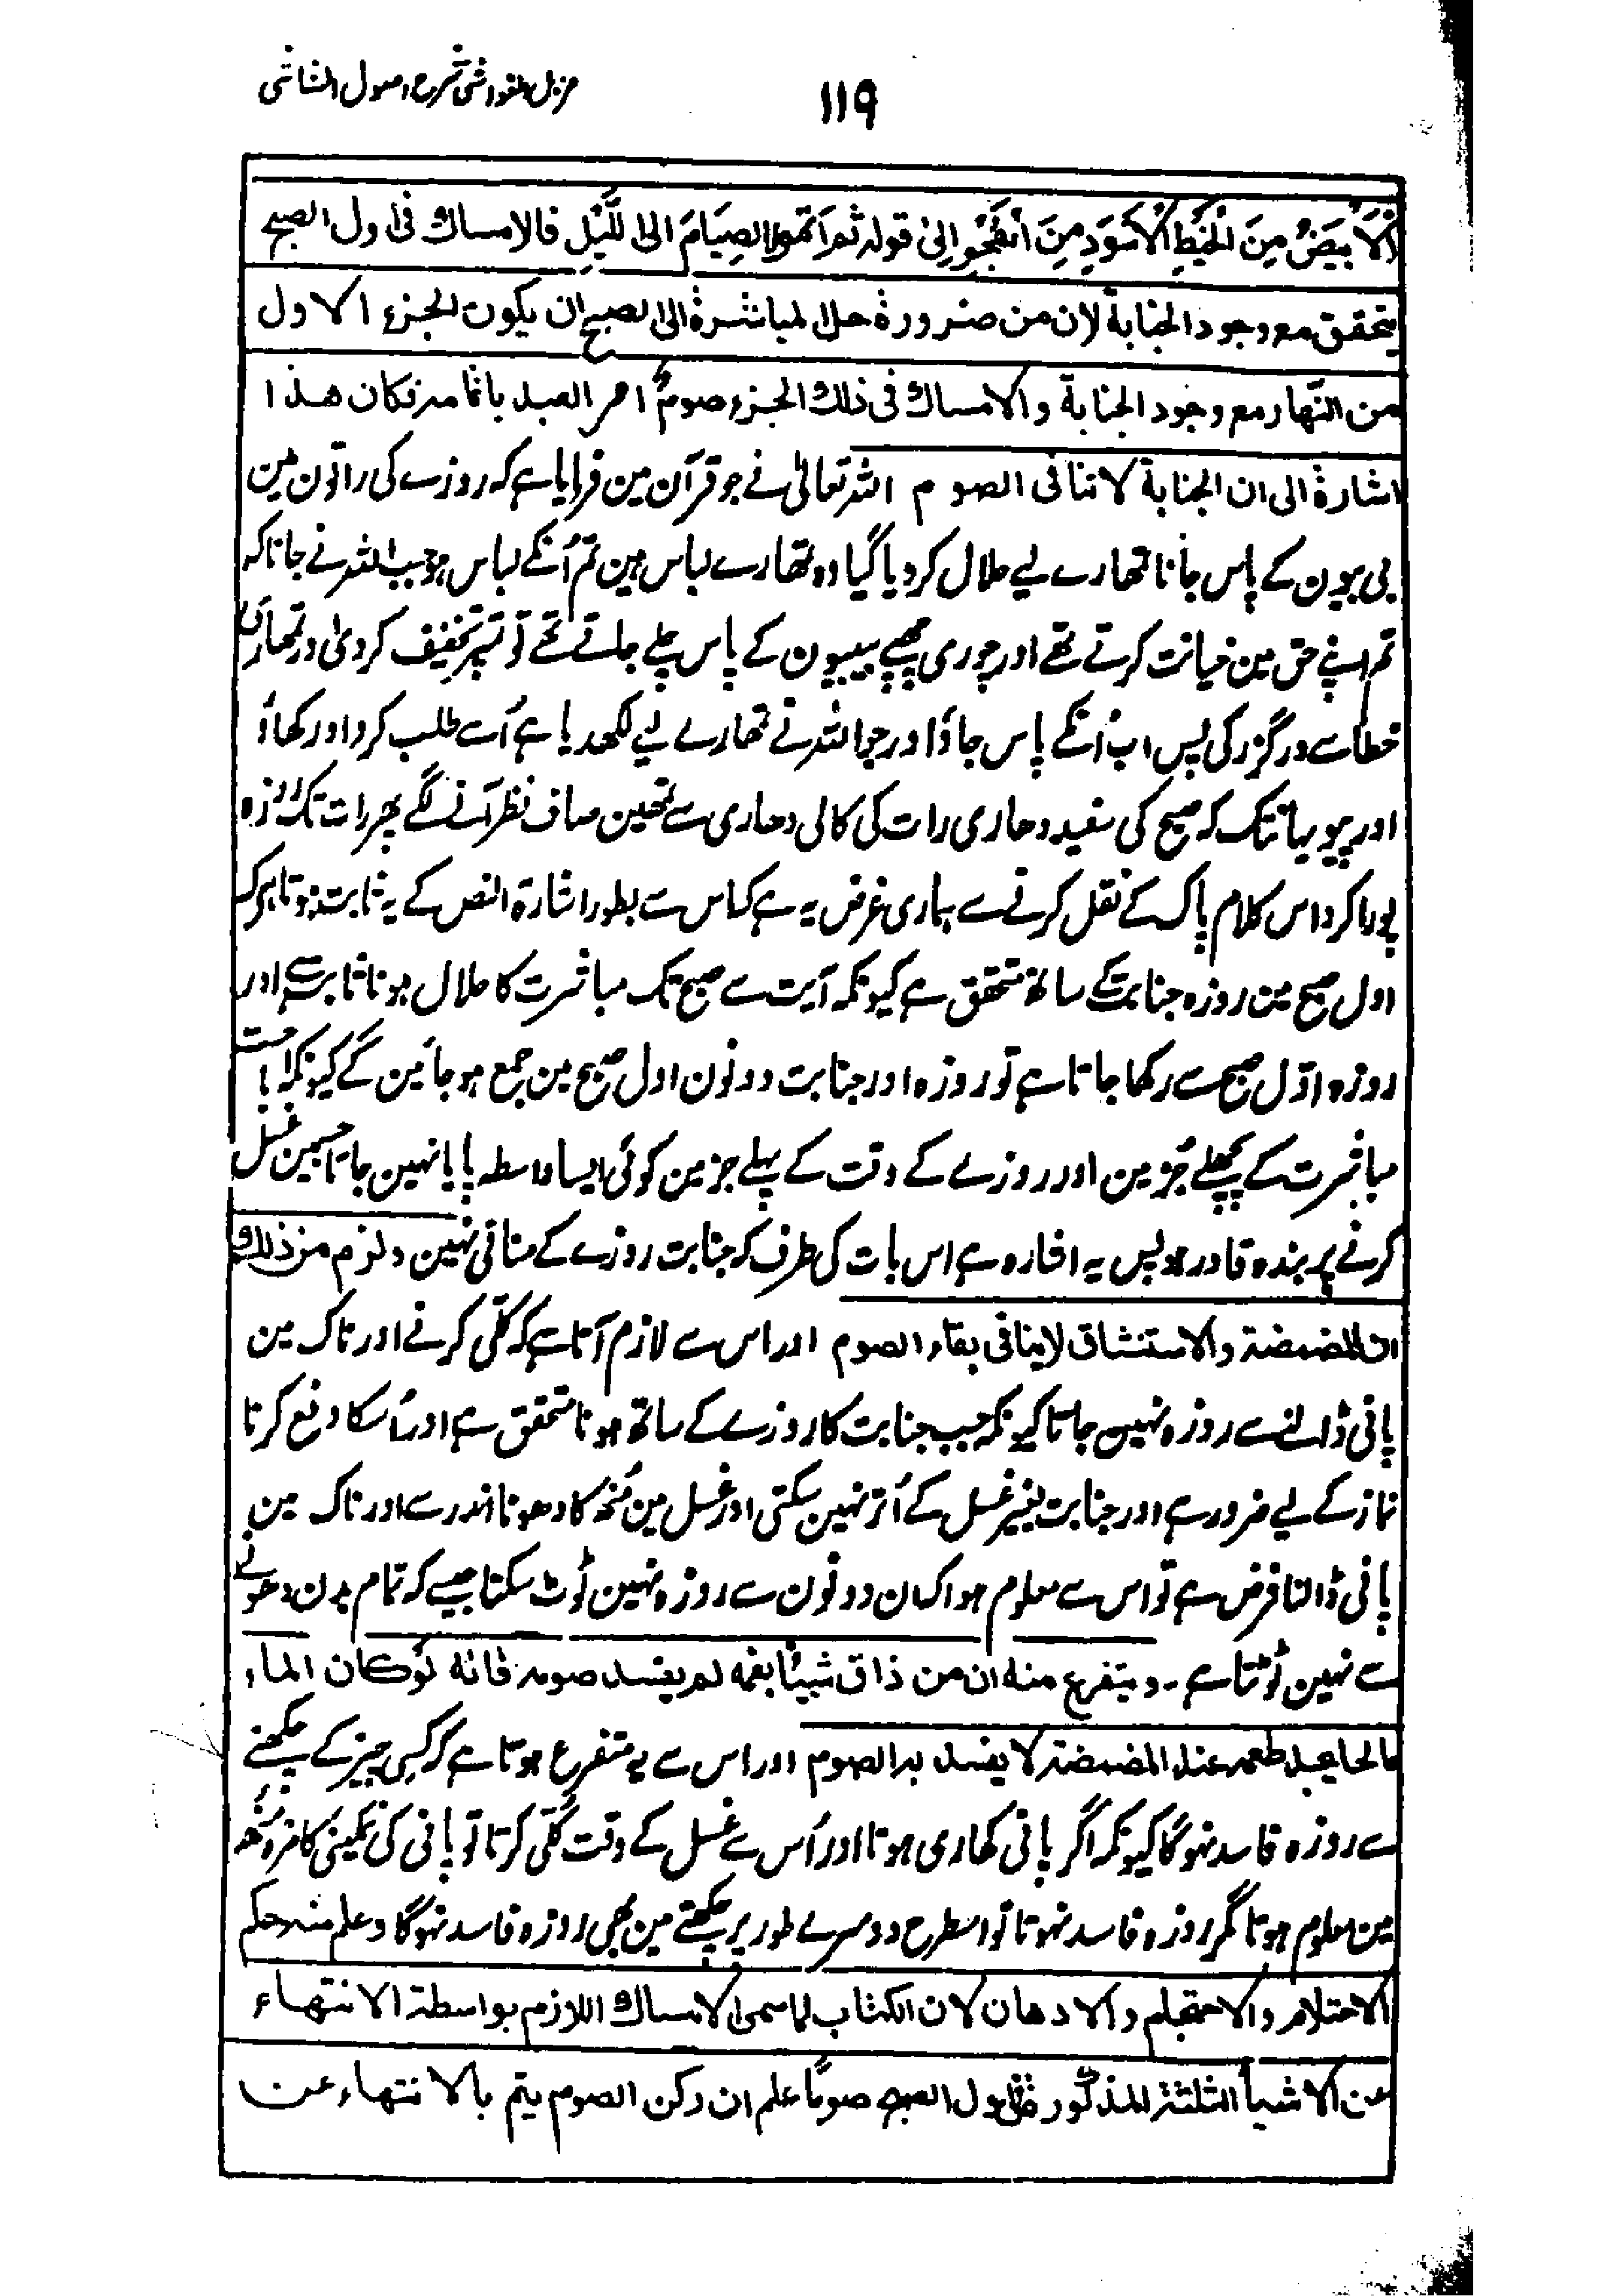 مزیل الغواشی شرح اصول الشاشی
۱۱۹
الْاَبْیَضُ مِنَ الْخَیْطِ الْاَسْوَدِ مِنَ الْفَجْرِ اِلیٰ قولہ ثُمَّ اَتِمُّوا الصِیَامَ الی الَّیْلِ فالامساك فی اول الصبح
یتحقق مع وجود الجنابة لان من ضرورة حل المباشرة الی الصبح ان یکون الجزء الاول
من النَّهار مع وجود الجنابة والامساك فی ذلك الجزء صومٌ امر العبد باتمامہ فکان هذا
اشارة الی ان الجنابة لا تنافی الصوم اللہ تعالیٰ نے جو قرآن مین فرمایا ہے کہ روزے کی راتون مین
بی بیون کے پاس جانا تمھارے لیے حلال کر دیا گیا وہ تمھارے لباس ہین تم اُنکے لباس ہو جب اللہ نے جانا کہ
تم اپنے حق مین خیانت کرتے تھے اور چوری چھپے بیبیون کے پاس چلے جاتے تھے تو تمپر تخفیف کر دی اور تمھاری
خطا سے درگزر کی پس اب اُنکے پاس جاؤ اور جو اللہ نے تمھارے لیے لکھدیا ہے اُسے طلب کرو اور کھاؤ
اور پیو یہانتک کہ صبح کی سفید دھاری رات کی کالی دھاری سے تمھین صاف نظر آنے لگے پھر رات تک روزہ
پورا کرو اس کلام پاک کے نقل کرنے سے ہماری غرض یہ ہے کہ اس سے بطور اشارۃ النص کے یہ ثابت ہوتا ہے کہ
اول صبح مین روزہ جنابت کے ساتھ متحقق ہے کیونکہ آیت سے صبح تک مباشرت کا حلال ہونا ثابت ہے اور
روزہ اوّل صبح سے رکھا جاتا ہے تو روزہ اور جنابت دونون اول صبح مین جمع ہو جائین گے کیونکہ اباحت
مباشرت کے پچھلے جُز مین اور روزے کے وقت کے پہلے جز مین کوئی ایسا واسطہ پایا نہین جاتا جسمین غسل
کرنے پر بندہ قادر ہو پس یہ اشارہ ہے اس بات کی طرف کہ جنابت روزے کے منافی نہین ولزم من ذلك
ان المضمضة والاستنشاق لاینافی بقاء الصوم اور اس سے لازم آتا ہے کہ کلّی کرنے اور ناک مین
پانی ڈالنے سے روزہ نہین جاتا کیونکہ جب جنابت کا روزے کے ساتھ ہونا متحقق ہے اور اُسکا دفع کرنا
نماز کے لیے ضرور ہے اور جنابت بغیر غسل کے اُتر نہین سکتی اور غسل مین مُنھ کا دھونا اندر سے اور ناک مین
پانی ڈالنا فرض ہے تو اس سے معلوم ہوا کہ ان دونون سے روزہ نہین ٹوٹ سکتا جیسے کہ تمام بدن دھونے
سے نہین ٹوٹتا ہے۔ ویتفرع منه ان من ذاق شیئًا بفمه لم یفسد صومہ فانه لوکان الماء
مالحا یجد طعمہ عند المضمضة لا یفسد بہ الصوم اور اس سے یہ متفرع ہوتا ہے کہ کسی چیز کے چکھنے
سے روزہ فاسد نہوگا کیونکہ اگر پانی کھاری ہوتا اور اُس سے غسل کے وقت کُلّی کرتا تو پانی کی نمکینی کا مزہ مُنھ
مین معلوم ہوتا مگر روزہ فاسد نہوتا تو اسطرح دوسرے طور پر چکھنے مین بھی روزہ فاسد نہوگا وعلم منہ حکم
الاحتلام والاحتجام والادهان لان الکتاب لما سمی الامساك اللازم بواسطة الانتهاء
عن الاشیاء الثلثة المذکورة فی اول الصبح صومًا علم ان رکن الصوم یتم بالانتهاء عن